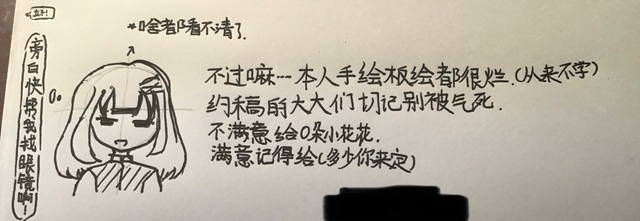 *啥都看不清了.
旁白快帮我找眼镜啊!
不过嘛…本人手绘板绘都很烂.(从来不学)
约稿的大大们切记别被气死.
不满意给0朵小花花.
满意记得给(多少你来定)